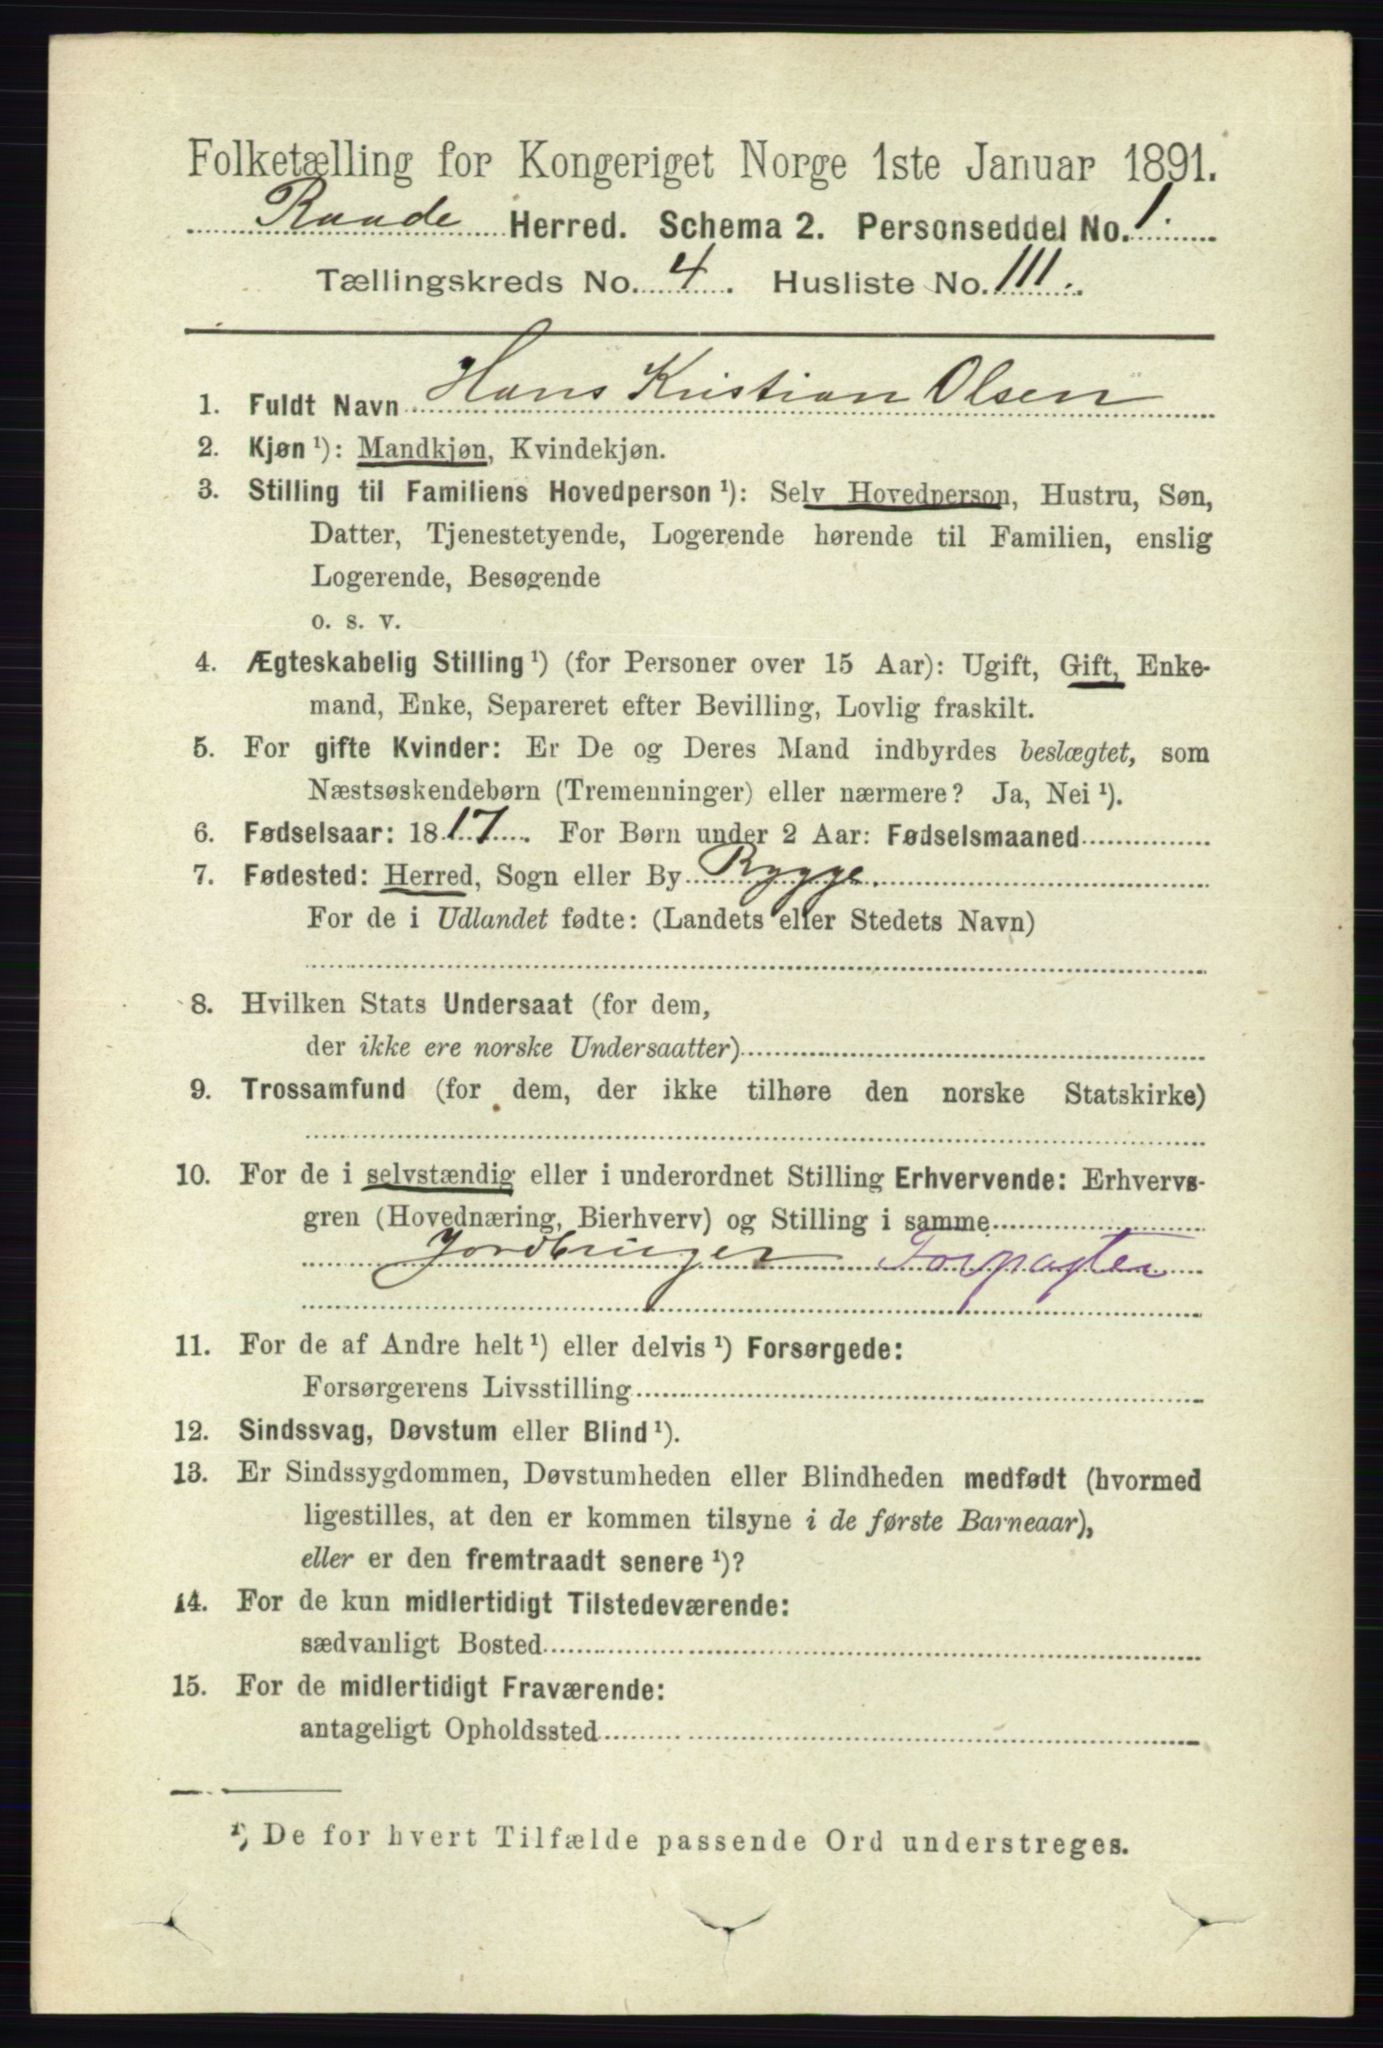 Folketælling for Kongeriget Norge 1ste Januar 1891.
Raade Herred. Schema 2. Personseddel No. 1.
Tællingskreds No. 4. Husliste No. 111.
1. Fuldt Navn Hans Kristian Olsen
2. Kjøn ¹): Mandkjøn, Kvindekjøn.
3. Stilling til Familiens Hovedperson ¹): Selv Hovedperson, Hustru, Søn,
Datter, Tjenestetyende, Logerende hørende til Familien, enslig
Logerende, Besøgende
o. s. v.
4. Ægteskabelig Stilling ¹) (for Personer over 15 Aar): Ugift, Gift, Enke-
mand, Enke, Separeret efter Bevilling, Lovlig fraskilt.
5. For gifte Kvinder: Er De og Deres Mand indbyrdes beslægtet, som
Næstsøskendebørn (Tremenninger) eller nærmere? Ja, Nei ¹).
6. Fødselsaar: 1817. For Børn under 2 Aar: Fødselsmaaned
7. Fødested: Herred, Sogn eller By Rygge.
For de i Udlandet fødte: (Landets eller Stedets Navn)
8. Hvilken Stats Undersaat (for dem,
der ikke ere norske Undersaatter)
9. Trossamfund (for dem, der ikke tilhøre den norske Statskirke)
10. For de i selvstændig eller i underordnet Stilling Erhvervende: Erhvervs-
gren (Hovednæring, Bierhverv) og Stilling i samme
Jordbruger Forpagter
11. For de af Andre helt ¹) eller delvis ¹) Forsørgede:
Forsørgerens Livsstilling
12. Sindssvag, Døvstum eller Blind ¹).
13. Er Sindssygdommen, Døvstumheden eller Blindheden medfødt (hvormed
ligestilles, at den er kommen tilsyne i de første Barneaar),
eller er den fremtraadt senere ¹)?
14. For de kun midlertidigt Tilstedeværende:
sædvanligt Bosted
15. For de midlertidigt Fraværende:
antageligt Opholdssted
¹) De for hvert Tilfælde passende Ord understreges.